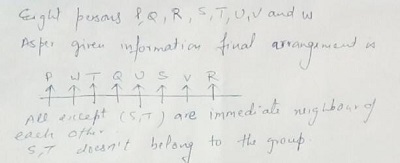 Eight persons P, Q, R, S, T, U, V and W
As per given information final arrangement is
P W T Q U S V R
All except (S,T) are immediate neighbour of
each other.
S,T doesn't belong to the group.